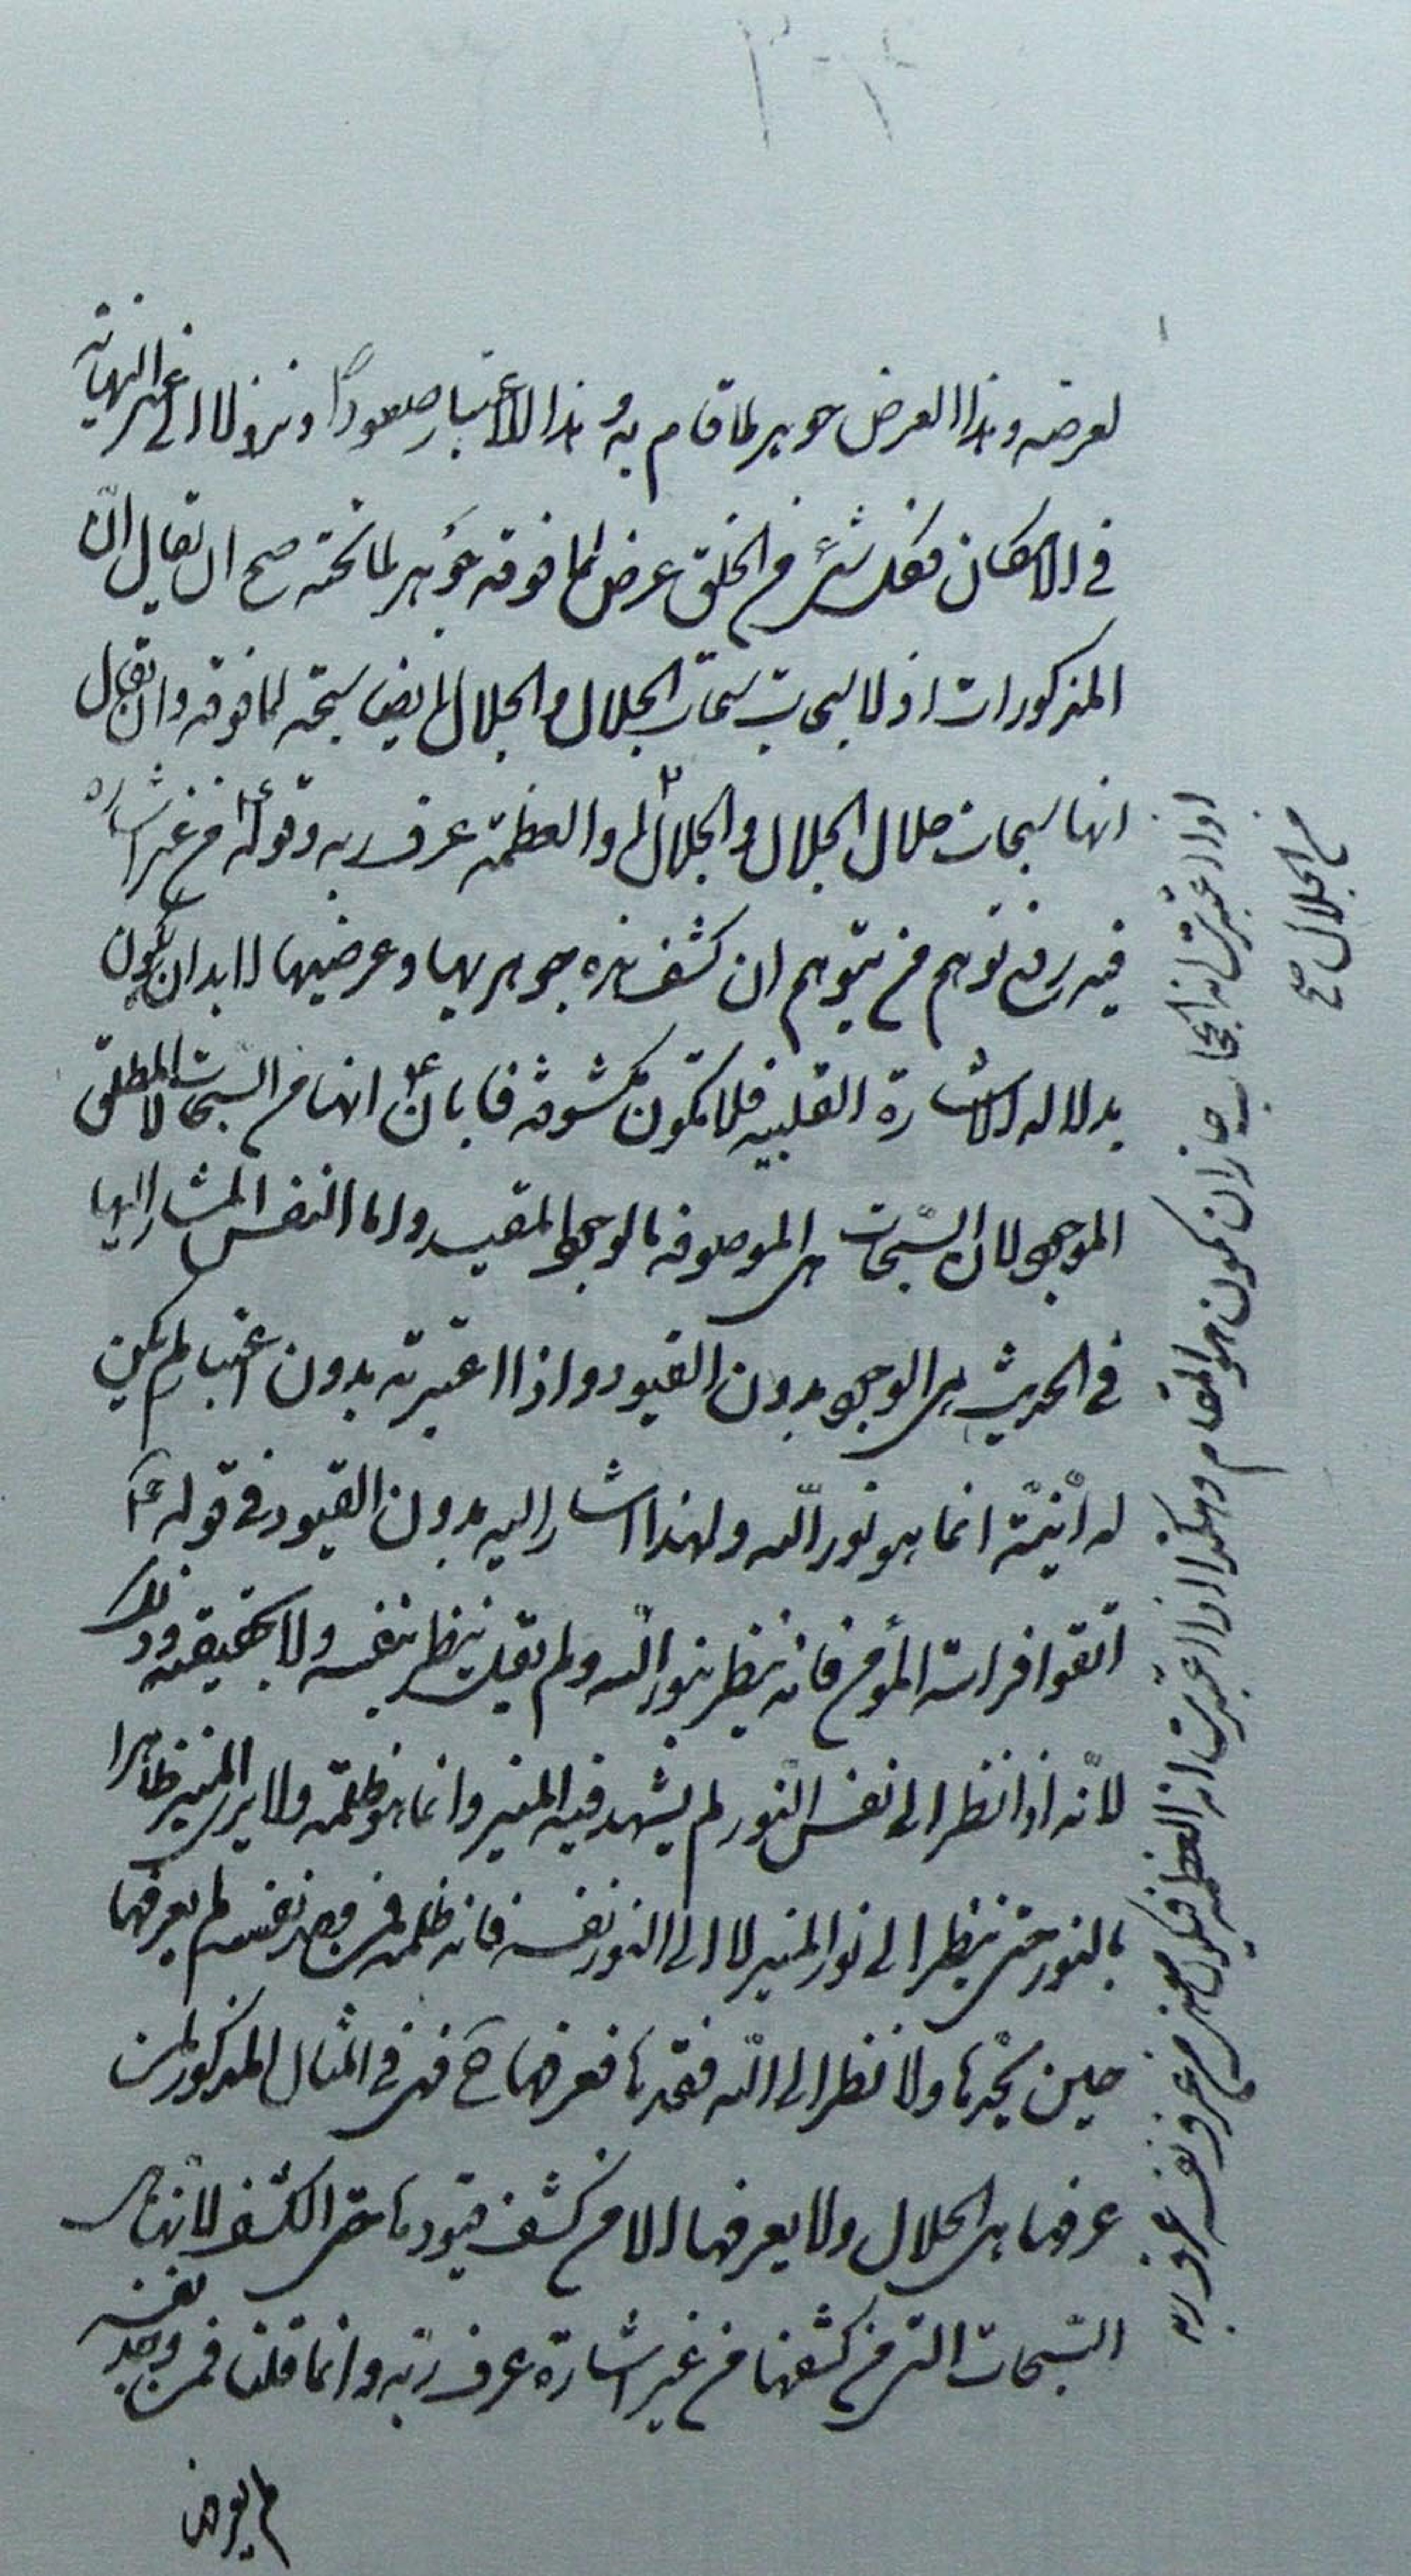 لعرضه وهذا العرض جوهر لما قام به وهذا الاعتبار صعودا ونزولا الى غير النهاية
في الامكان فكل شئ من الخلق عرض لما فوقه جوهر لما تحته صح ان يقال انّ
المذكورات اولا سبحات سبحات الجلال والجلال ايضا سبحة لما فوقه وان يقال
انها سبحات جلال الجلال والجلال والعظمة عرف ربه وقوله ع من غير اشارة
فيه رفع توهم من يتوهم ان كشف هذه جوهريها وعرضيها لابد ان يكون
بدلالة الاشارة القلبية فلا تكون مكشوفة فابان ع انها من السبحات لا المطلق
الموجود لان السّبحات هى الموصوفة بالوجود المقيد واما النفس المشار اليها
في الحديث هى الوجود بدون القيود واذا اعتبرته بدون اعتبار لم يكن
له انيّة انما هو نور اللّه ولهذا اشار اليه بدون القيود في قوله ع
اتقوا فراسة المؤمن فانه ينظر بنور اللّه ولم يقل ينظر بنفسه ولا بحقيقته وذلك
لانّه اذا نظر الى نفس النّور لم يشهد فيه المنير وانما هو ظلمة ولا يرى المنير ظاهرا
بالنور حتى ينظر الى نور المنير لا الى النور نفسه فانه ظلمة فمن وجد نفسه لم يعرفها
حين يجدها ولا نظر الى اللّه فقدها فعرفها ح فهى في المثال المذكور لمن
عرفها هى الجلال ولا يعرفها الا من كشف قيودها حتى الكشف لانها هى
السّبحات التى من كشفها من غير اشارة عرف ربّه وانما قلنا فمن وجد نفسه
لم يعرفها
اذا اعتبرت انه الحجاب جاز ان يكون هو المقام وهكذا اذا اعتبرت انه العظمة فيكون معنى من عرف نفسه عرف ربه
من الجلال صح